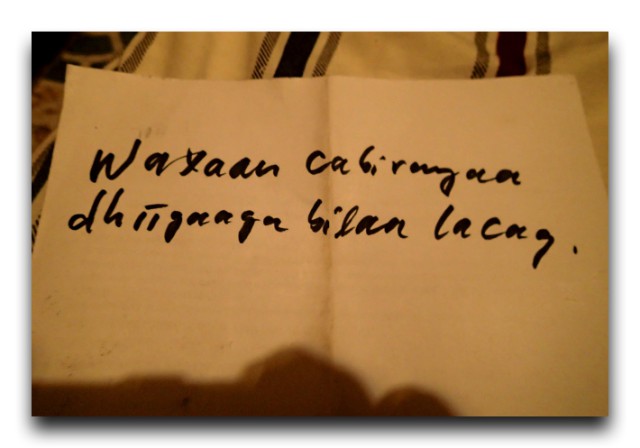 Waxaan cabirayaa
dhiigaaga bilaa lacag.